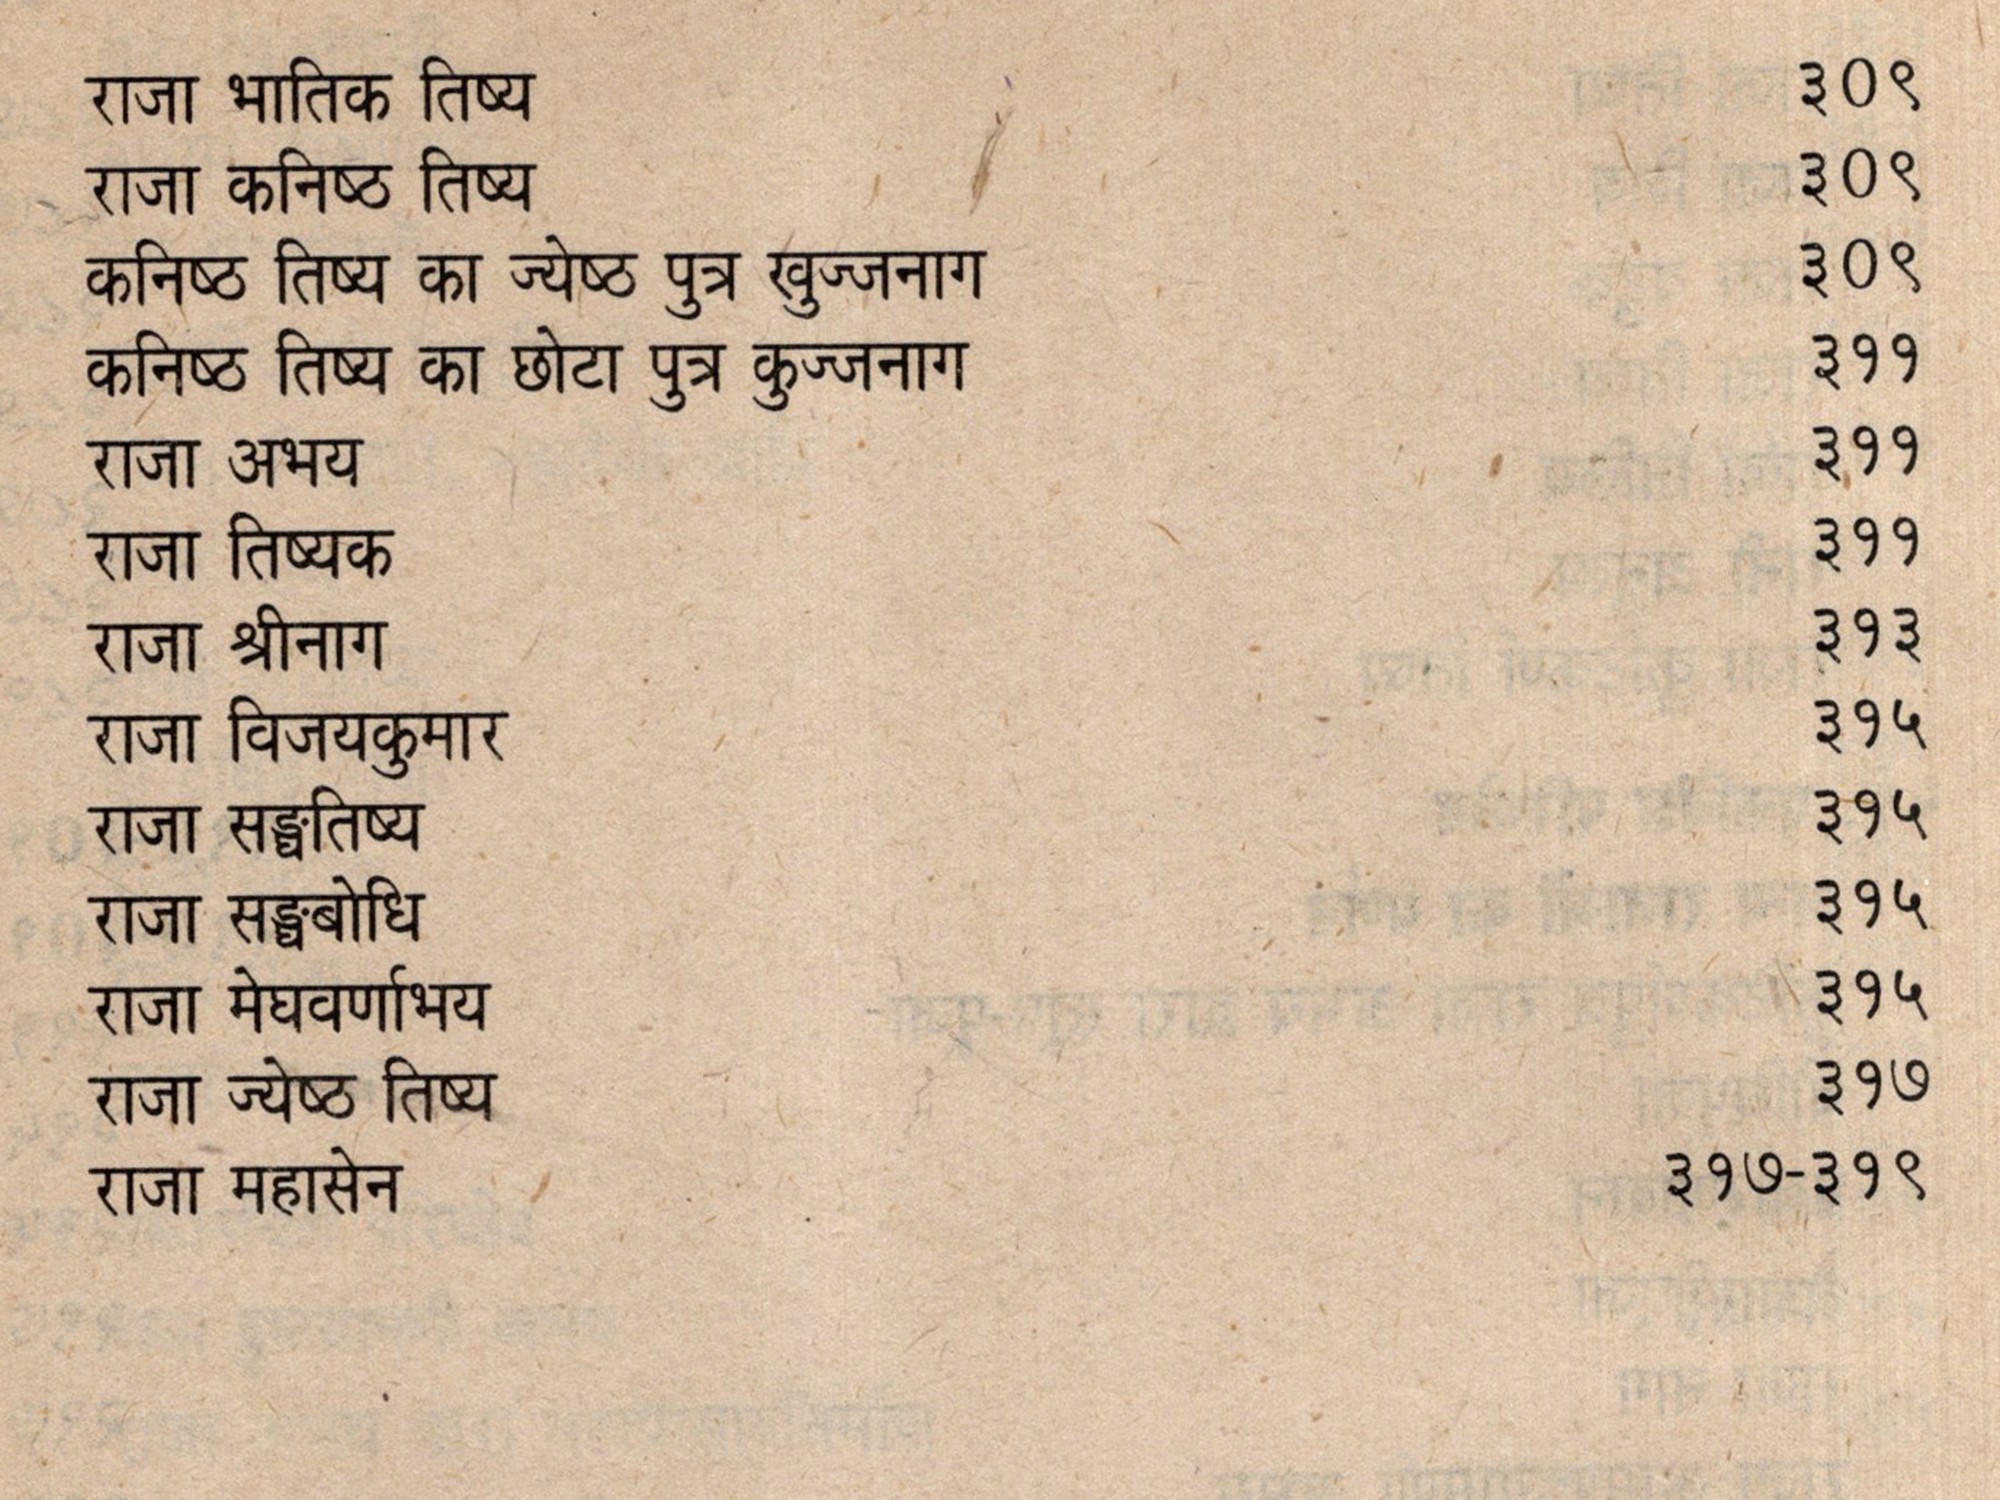 राजा भातिक तिष्य ३०९
राजा कनिष्ठ तिष्य ३०९
कनिष्ठ तिष्य का ज्येष्ठ पुत्र खुज्जनाग ३०९
कनिष्ठ तिष्य का छोटा पुत्र कुज्जनाग ३११
राजा अभय ३११
राजा तिष्यक ३११
राजा श्रीनाग ३१३
राजा विजयकुमार ३१५
राजा सङ्घतिष्य ३१५
राजा सङ्घबोधि ३१५
राजा मेघवर्णाभय ३१५
राजा ज्येष्ठ तिष्य ३१७
राजा महासेन ३१७-३१९